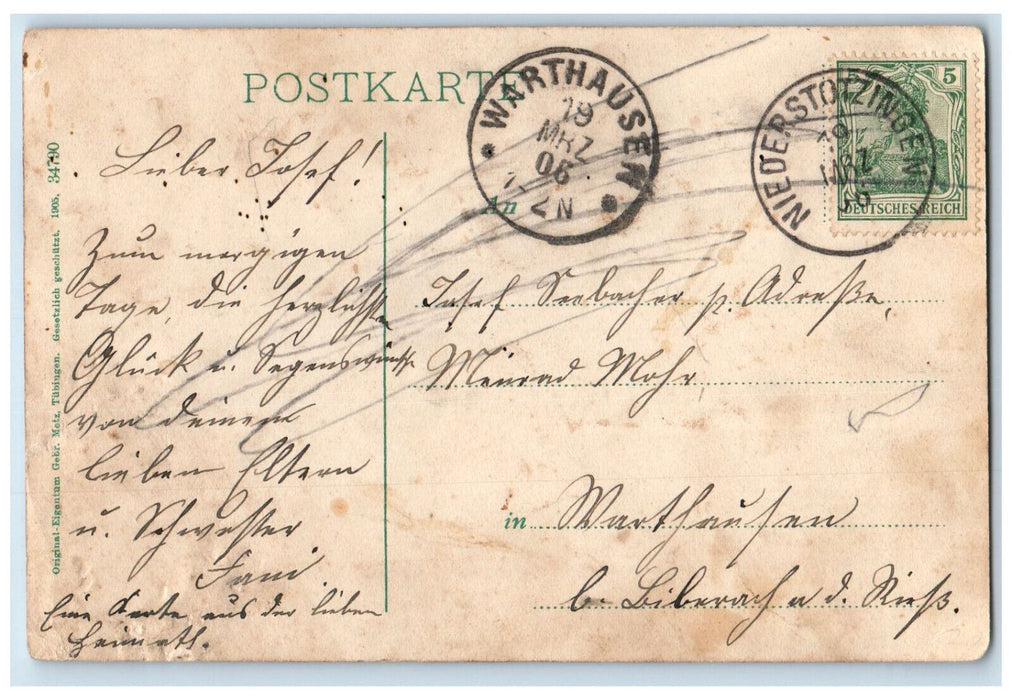 POSTKARTE
WARTHAUSEN
19
MRZ
06
2N
NIEDERSTOTZINGEN
19
06
5
DEUTSCHES REICH
Lieber Josef!
Zum morgigen
Tage, die herzlichsten
Glück u. Segenswünsche
von deinen
lieben Eltern
u. Schwester
Fani.
Eine Karte aus der lieben
Heimath.
An
Josef Seebacher p. Adreße,
Meinrad Mohr
in Warthausen
b. Biberach a d. Rieß.
Original-Eigentum Gebr. Metz, Tübingen. Gesetzlich geschützt. 1905. 34790